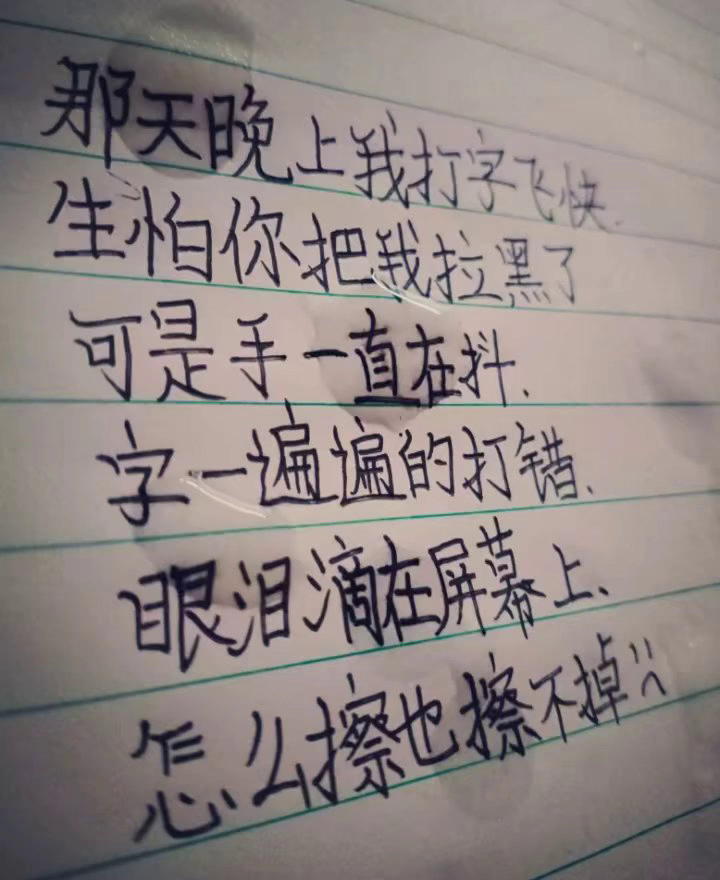 那天晚上我打字飞快.
生怕你把我拉黑了
可是手一直在抖.
字一遍遍的打错、
眼泪滴在屏幕上、
怎么擦也擦不掉